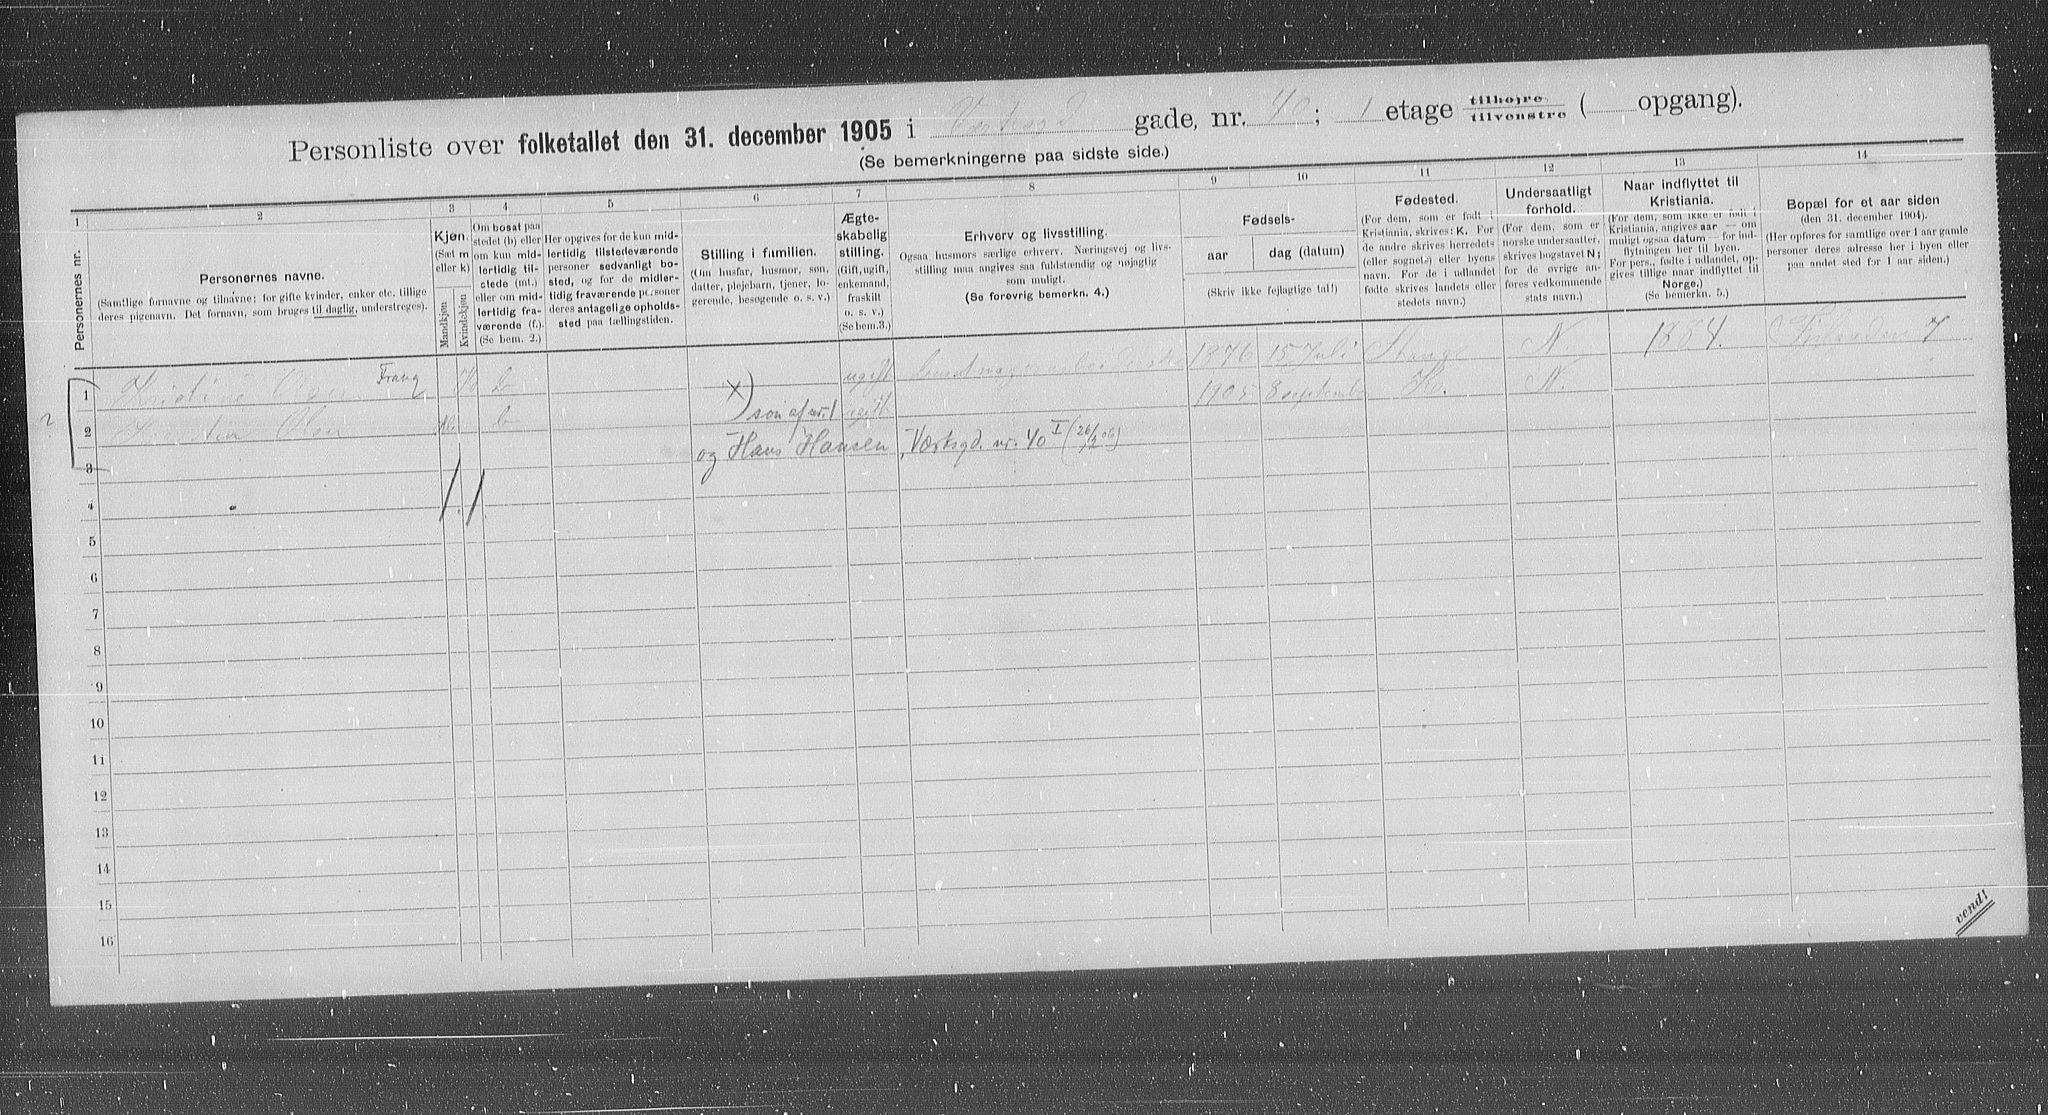 Personliste over folketallet den 31. december 1905 i Værksgd gade, nr. 40; 1 etage tilhøjre tilvenstre ( opgang).
(Se bemerkningerne paa sidste side.)
1 2 3 4 5 6 7 8 9 10 11 12 13 14
Personernes nr.
Personernes navne.
(Samtlige fornavne og tilnavne; for gifte kvinder, enker etc. tillige
deres pigenavn. Det fornavn, som bruges til daglig, understreges).
Kjøn.
(Sæt m
eller k)
Mandkjøn
Kvindekjøn
Om bosat paa
stedet (b) eller
om kun mid-
lertidig til-
stede (mt.)
eller om mid-
lertidig fra-
værende (f.).
(Se bem. 2.)
Her opgives for de kun mid-
lertidig tilstedeværende
personer sedvanligt bo-
sted, og for de midler-
tidig fraværende personer
deres antagelige opholds-
sted paa tællingstiden.
Stilling i familien.
(Om husfar, husmor, søn,
datter, plejebarn, tjener, lo-
gerende, besøgende o. s. v.)
Ægte-
skabelig
stilling.
(Gift, ugift,
enkemand,
fraskilt
o. s. v.)
(Se bem.3.)
Erhverv og livsstilling.
Ogsaa husmors særlige erhverv. Næringsvej og livs-
stilling maa angives saa fuldstændig og nøjagtig
som muligt.
(Se forøvrig bemerkn. 4.)
Fødsels-
aar
dag (datum)
(Skriv ikke fejlagtige tal!)
Fødested.
(For dem, som er født i
Kristiania, skrives: K. For
de andre skrives herredets
(eller sognets) eller byens
navn. For de i udlandet
fødte skrives landets eller
stedets navn.)
Undersaatligt
forhold.
(For dem, som er
norske undersaatter,
skrives bogstavet N;
for de øvrige an-
føres vedkommende
stats navn.)
Naar indflyttet til
Kristiania.
(For dem, som ikke er født i
Kristiania, angives aar — om
muligt ogsaa datum — for ind-
flytningen her til byen.
For pers., fødte i udlandet, op-
gives tillige naar indflyttet til
Norge.)
(Se bemerkn. 5.)
Bopæl for et aar siden
(den 31. december 1904).
(Her opføres for samtlige over 1 aar gamle
personer deres adresse her i byen eller
paa andet sted for 1 aar siden.)
1 Kristine Olsen k b ugift 1876 15 Juli Stange N 1884. 7
2 Olsen m b x) søn af nr. 1 ugift 1905 8 september Kr. N.
3 og Hans Hansen, Værksgd. nr. 40 I (26/2 06)
4 1. 1.
5
6
7
8
9
10
11
12
13
14
15
16
vend!